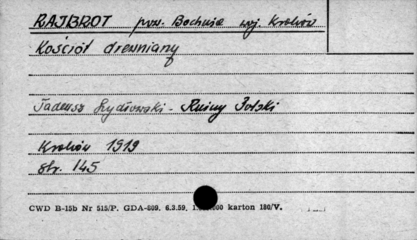 RAJBROT pow. Bochnia woj. Kraków
Kościół drewniany
Tadeusz Szydłowski - Ruiny Polski
Kraków 1919
str. 145
CWD B-15b Nr 515/P. GDA-809. 6.3.59. karton 180/V.